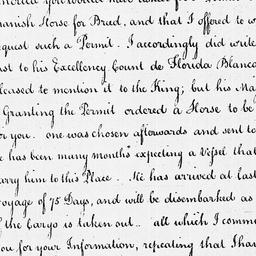 panish Horse for Breed, and that I offered to w
equest such a Permit. I accordingly did write
ast to his Excellency Count de Florida Blanca
leased to mention it to the King; but his Ma
Granting the Permit ordered a Horse to be
or you. one was chosen afterwards and sent to
e has been many months expecting a Vessel that
arry him to this Place. He has arrived at last
oyage of 75 Days, and will be disembarked as
f the Cargo is taken out.. all which I comm
ou for your Information, repeating that I hav